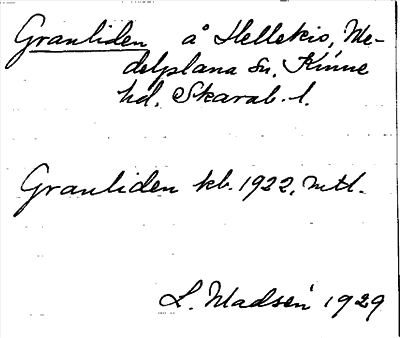 Granliden å Hellekis, Me-
delplana sn, Kinne
hd. Skarab. l.
Granliden kb. 1922, mtl.
L. Madsén 1929